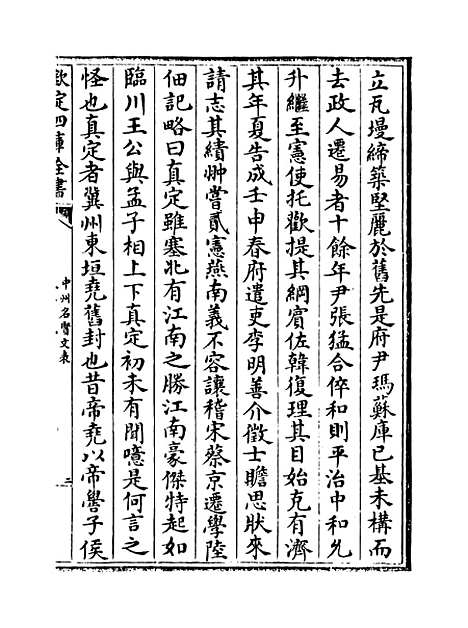 立瓦墁締築堅麗於舊先是府尹瑪蘇庫已基未構而
去政人遷易者十餘年尹張猛合倅和則平治中和允
升繼至憲使托歡提其綱賓佐韓復理其目始克有濟
其年夏告成壬申春府遣吏李明善介徵士贍思狀來
請志其績艸嘗貳憲燕南義不容讓稽宋蔡京遷學陸
佃記略曰真定雖塞北有江南之勝江南豪傑特起如
臨川王公與孟子相上下真定初未有聞噫是何言之
怪也真定者冀州東垣堯舊封也昔帝堯以帝嚳子侯
欽定四庫全書
中州名賢文表
三